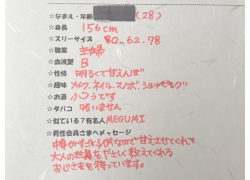 ☆なまえ・年齢 (28)
☆身長 156cm
☆スリーサイズ 80.62.78
☆職業 主婦
☆血液型 B
☆性格 明るくて甘えんぼ
☆趣味 メイク、ネイル、スノボ、ショッピング
☆お酒 ふつうです
☆タバコ 吸いません
☆似ている?有名人 MEGUMI
☆男性会員さまへメッセージ
甘えさせてくれて
大人の世界をやさしく教えてくれる
おじさまを待っています。